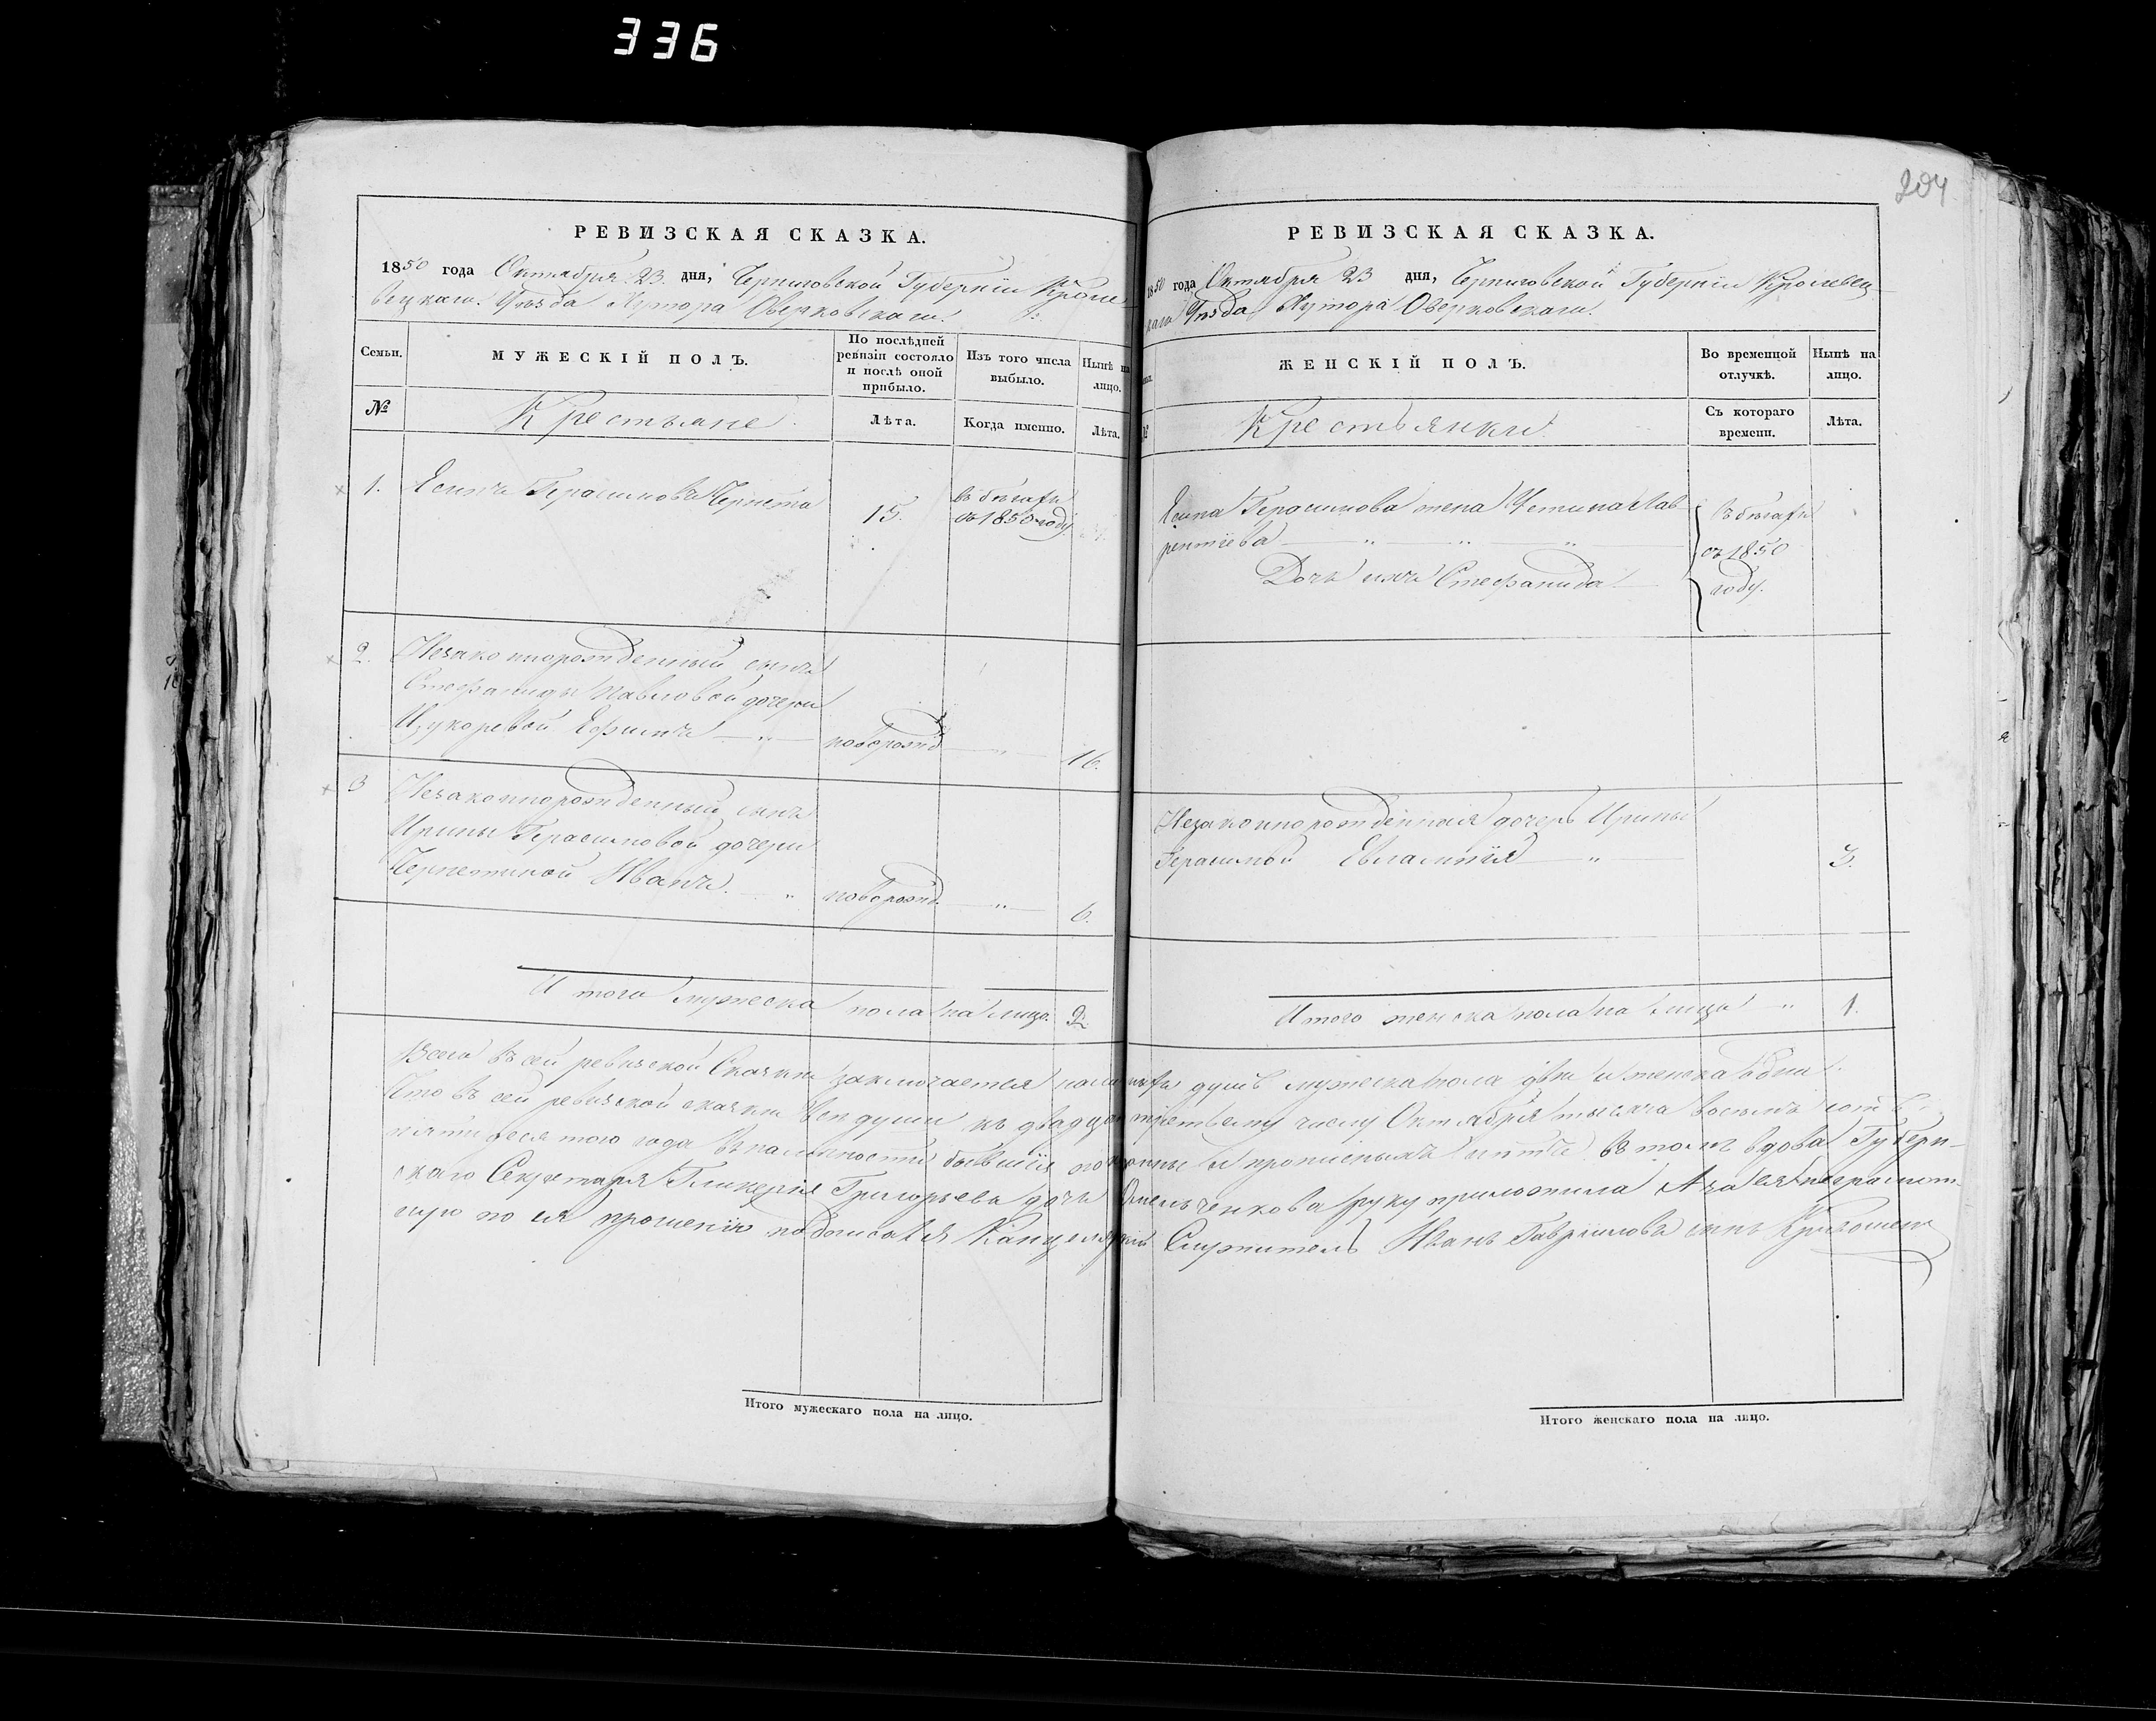 336
204
РЕВИЗСКАЯ СКАЗКА.
1850 года Октября 23 дня, Черниговской Губерніи Кроле
вецкаго Уѣзда Хутора Оверковскаго.
Семьи.
МУЖЕСКІЙ ПОЛЪ.
По послѣдней
ревизіи состояло
и послѣ оной
прибыло.
Изъ того числа
выбыло.
Нынѣ на
лицо.
№
Крестьяне
Лѣта.
Когда именно.
Лѣта.
1. Герасимовъ 15. въ бѣгахъ
съ 1850 году
2. Незаконнорожденный сынъ
Стефаниды Павловой дочери
Ефимъ новорожд 16.
3 Незаконнорожденный сынъ
Ирины Герасимовой дочери
Иванъ новорожд. 6.
Итого мужеска пола на лицо. 2.
РЕВИЗСКАЯ СКАЗКА.
1850 года Октября 23 дня, Черниговской Губерніи Кролевец
каго Уѣзда Хутора Оверковскаго.
ЖЕНСКІЙ ПОЛЪ.
Во временной
отлучкѣ.
Нынѣ на
лицо.
Крестьянки
Съ котораго
времени.
Лѣта.
Герасимова жена Устина Лав
рентіева
Дочь ихъ Стефанида
въ бѣгахъ
съ 1850
году.
Незаконнорожденная дочерь Ирины
Евлампія 3.
Итого женска пола на лицо 1.
Всего въ сей ревизской Сказкѣ заключается душъ мужеска пола двѣ и женска одна.
Что въ сей ревизской сказкѣ всѣ души къ двадцать третьему числу Октября тысяча восемь сотъ
пятидесятого года въ наличности бывшія и прописныхъ нѣтъ въ томъ вдова Губерн-
скаго Секретаря Гликерія Григорьева дочь Омельченкова руку приложила А за ея неграмот-
ную по ея прошенію подписался Канцелярскій Служитель Иванъ Гавриловъ сынъ
Итого мужескаго пола на лицо.
Итого женскаго пола на лицо.